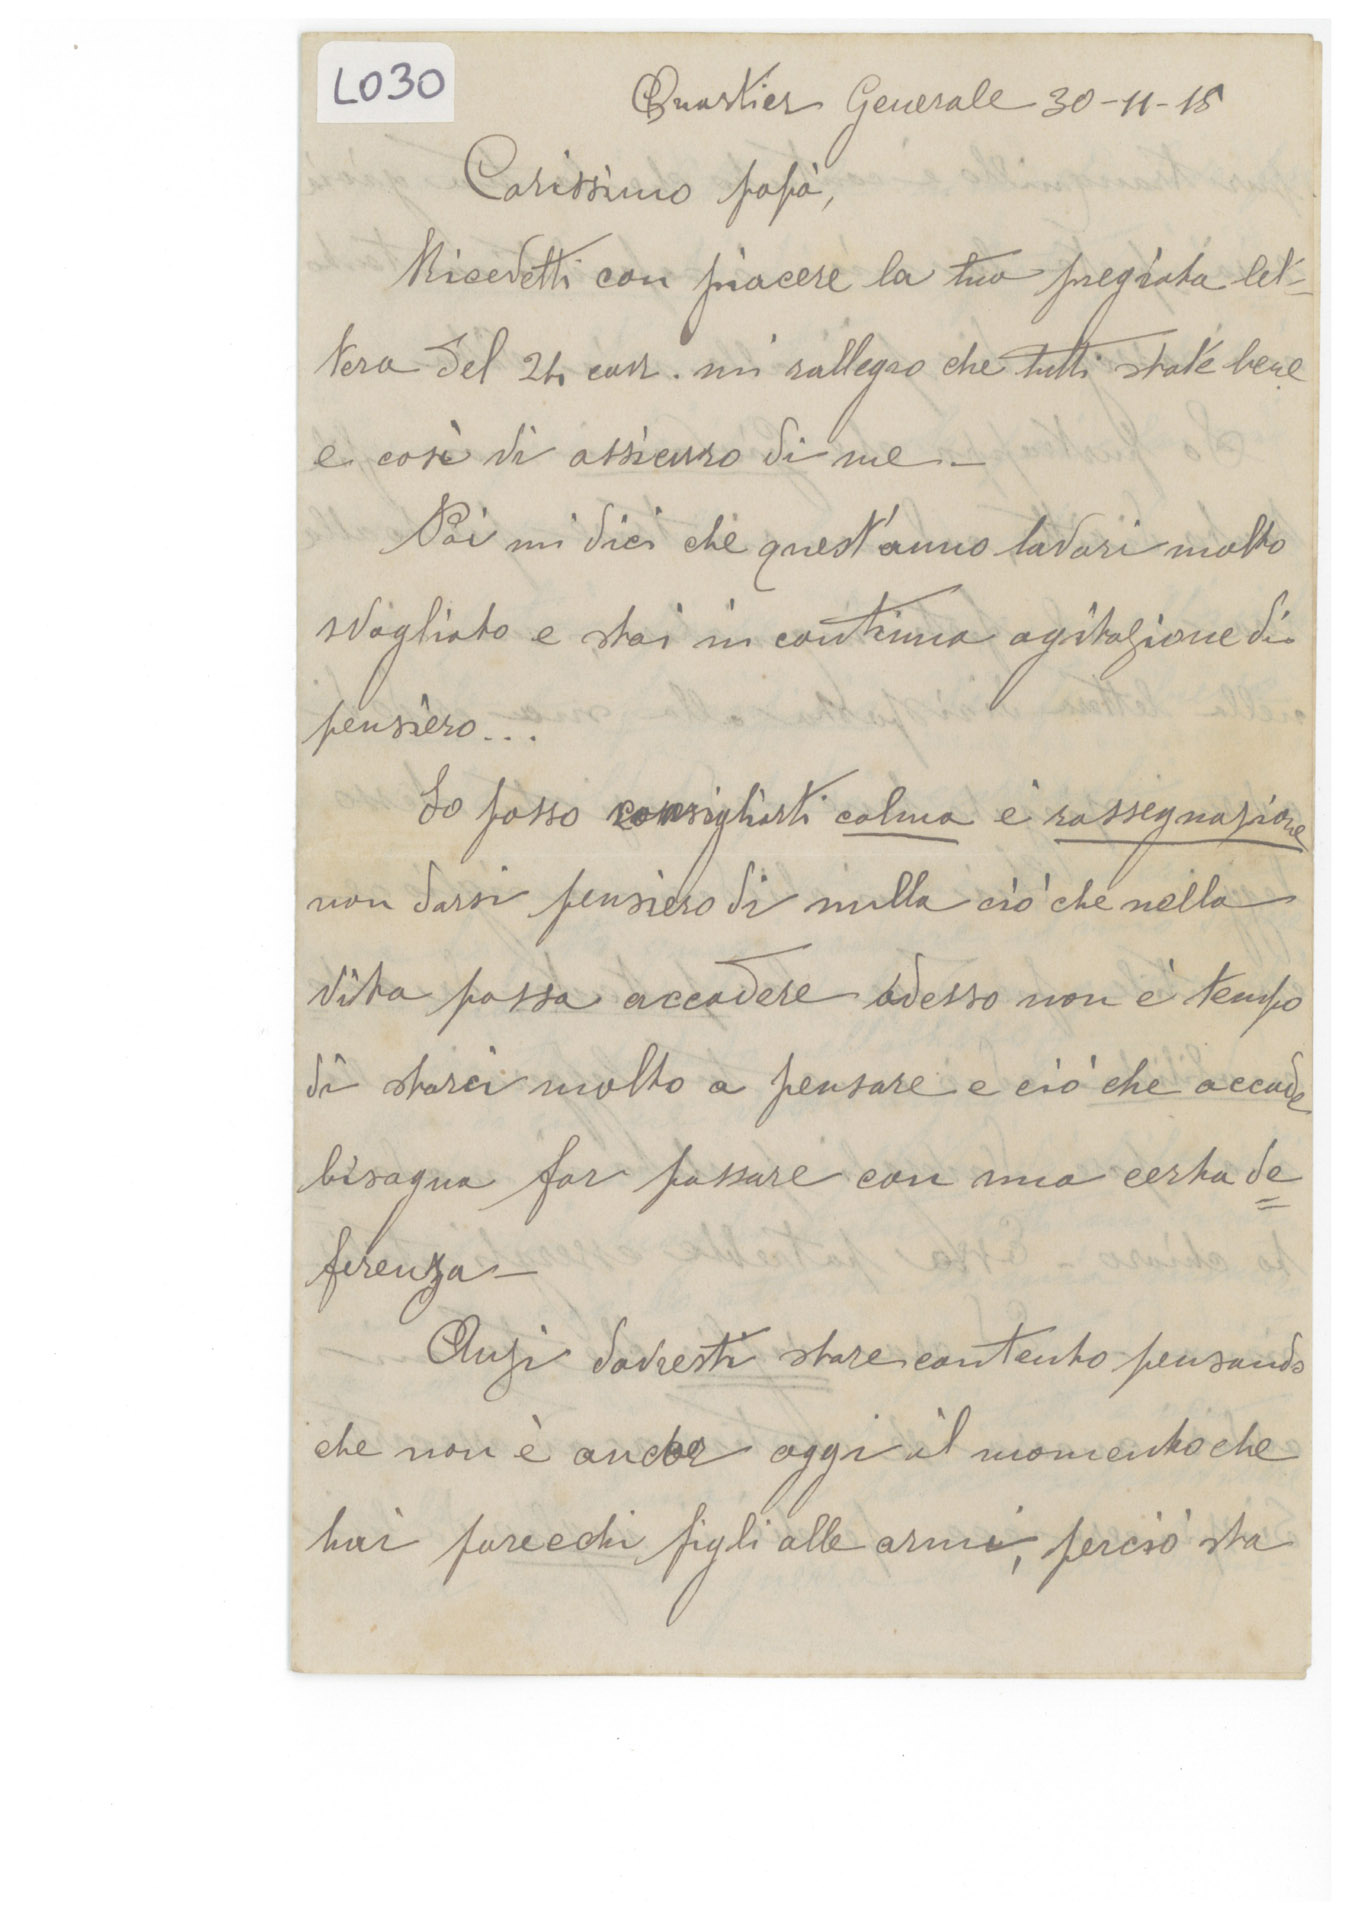 L030
Quartier Generale 30-11-15
Carissimo papà,
Ricevetti con piacere la tua pregiata let=
tera del 24 corr. mi rallegro che tutti state bene
e così di assicuro di me.-
Poi mi dici che quest'anno lavori molto
svogliato e stai in continua agitazione di
pensiero...
Io posso consigliarti calma e rassegnazione
non darsi pensiero di nulla ciò che nella
vita possa accadere adesso non è tempo
di starci molto a pensare e ciò che accade
bisogna far passare con una certa de=
ferenza-
Anzi dovresti stare contento pensando
che non è ancor oggi il momento che
hai parecchi figli alle armi, perciò sta